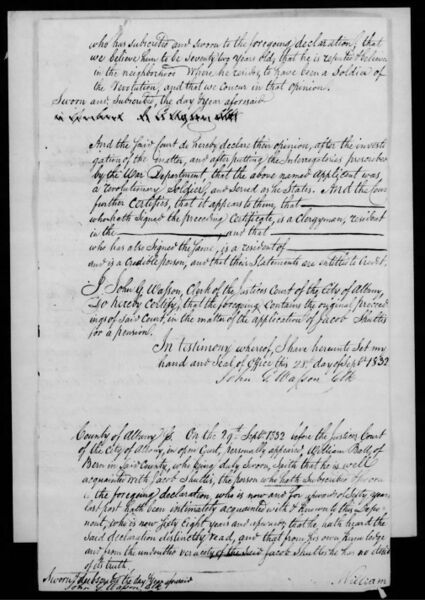 who has subscribed and sworn to the foregoing declaration, that
we believe him to be Seventy two years old, that he is reputed & believed
in the neighborhood where he resides, to have been a Soldier of
the Revolution, and that we concur in that opinion.
Sworn and Subscribed, the day & year aforesaid
And the Said Court do hereby declare their opinion, after the investi
gation of the matter, and after putting the Interrogatories prescribed
by the War Department, that the above named applicant was
a revolutionary Soldier, and Served as he States. And the Court
further Certifies, that it appears to them, that
who hath Signed the preceding Certificate, is a Clergyman, resident
in the and that
who has also Signed the Same, is a resident of
and is a Credible person, and that their Statements are entitled to Credit.
I John G Wasson, Clerk of the Justices Court of the City of Albany,
Do hereby Certify, that the foregoing Contains the original proceed
ings of said Court, in the matter of the application of Jacob Shutter
for a pension.
In testimony whereof, I have hereunto Set my
hand and Seal of Office this 28th day of Sept. 1832
John G Wasson Clk
County of Albany SS. On the 29th Septr 1832 before the Justices Court
of the City of Albany, in open Court, personally appeared, William Ball, of
Bern in Said County, who being duly Sworn, Saith that he is well
acquainted with Jacob Shutter, the person who hath Subscribed & Sworn
the foregoing declaration, who is now and for upward of fifty years
last past hath been intimately acquainted with & known to this Depo
nent, who is now Sixty Eight years and upward, that he, hath heard the
said declaration distinctly read, and that from his own knowledge
and from the undoubted veracity of the said Jacob Shutter he has no doubt
of its truth.
Sworn & Subscribed the day & year aforesaid
John G Wasson Clk
William